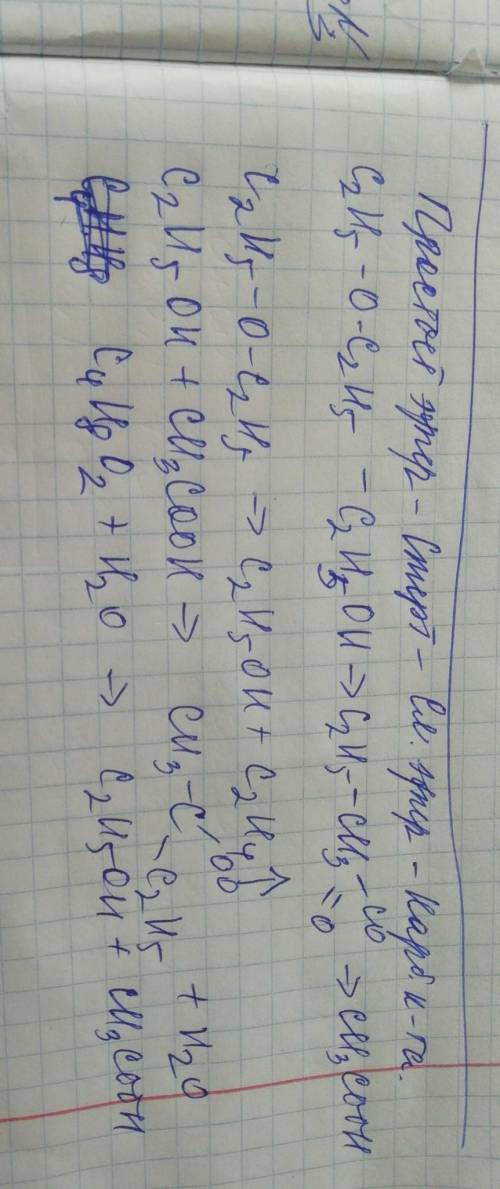 Простой эфир – Спирт – Сл. эфир – Карб. к-та.
C₂H₅ – O – C₂H₅ – C₂H₅OH → C₂H₅ – CH₃ – CO = O → CH₃COOH
C₂H₅ – O – C₂H₅ ⇒ C₂H₅OH + C₂H₄↑
C₂H₅OH + CH₃COOH ⇒ CH₃ – C – C₂H₅ + H₂O
C₄H₈O₂ + H₂O → C₂H₅OH + CH₃COOH